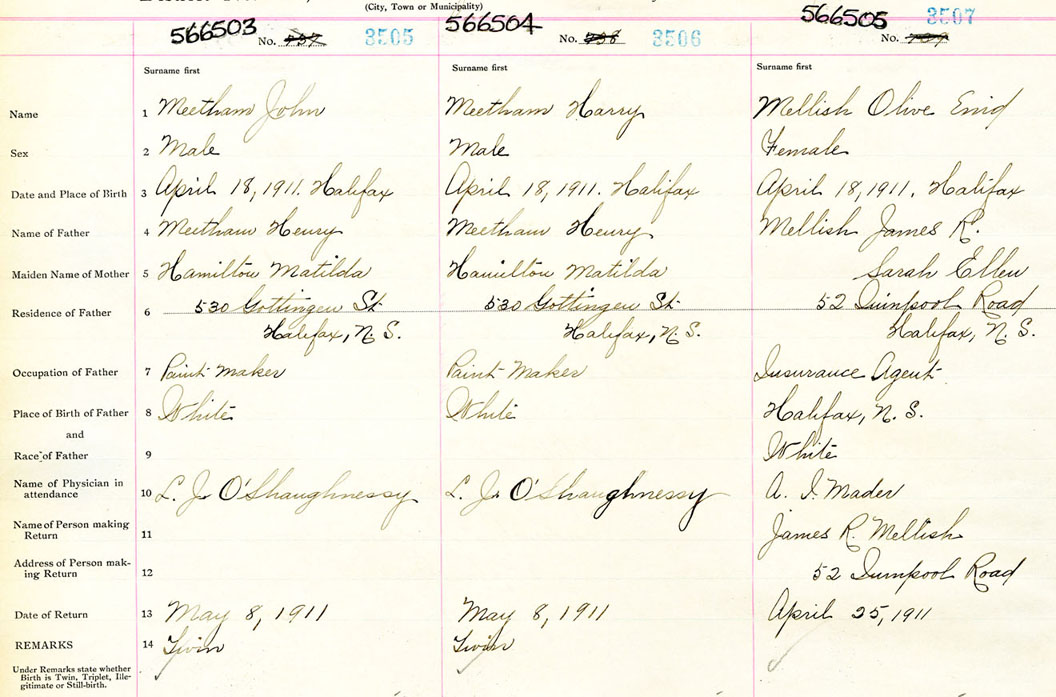 (City, Town or Municipality)
566503 566504 566505 3507
No. 3505 No. 3506 No.
Surname first Surname first Surname first
Name 1 Meetham John Meetham Harry Mellish Olive Enid
Sex 2 Male Male Female
Date and Place of Birth 3 April 18, 1911. Halifax April 18, 1911. Halifax April 18, 1911. Halifax
Name of Father 4 Meetham Henry Meetham Henry Mellish James R.
Maiden Name of Mother 5 Hamilton Matilda Hamilton Matilda Sarah Ellen
Residence of Father 6 530 Gottingen St 530 Gottingen St 52 Quinpool Road
Halifax, N. S. Halifax, N. S. Halifax, N. S.
Occupation of Father 7 Paint Maker Paint Maker Insurance Agent
Place of Birth of Father 8 White White Halifax, N. S.
and
Race of Father 9 White
Name of Physician in
attendance 10 L. J. O'Shaughnessy L. J. O'Shaughnessy A. I. Mader
Name of Person making
Return 11 James R. Mellish
Address of Person mak-
ing Return 12 52 Quinpool Road
Date of Return 13 May 8, 1911 May 8, 1911 April 25, 1911
REMARKS 14 Twin Twin
Under Remarks state whether
Birth is Twin, Triplet, Ille-
gitimate or Still-birth.